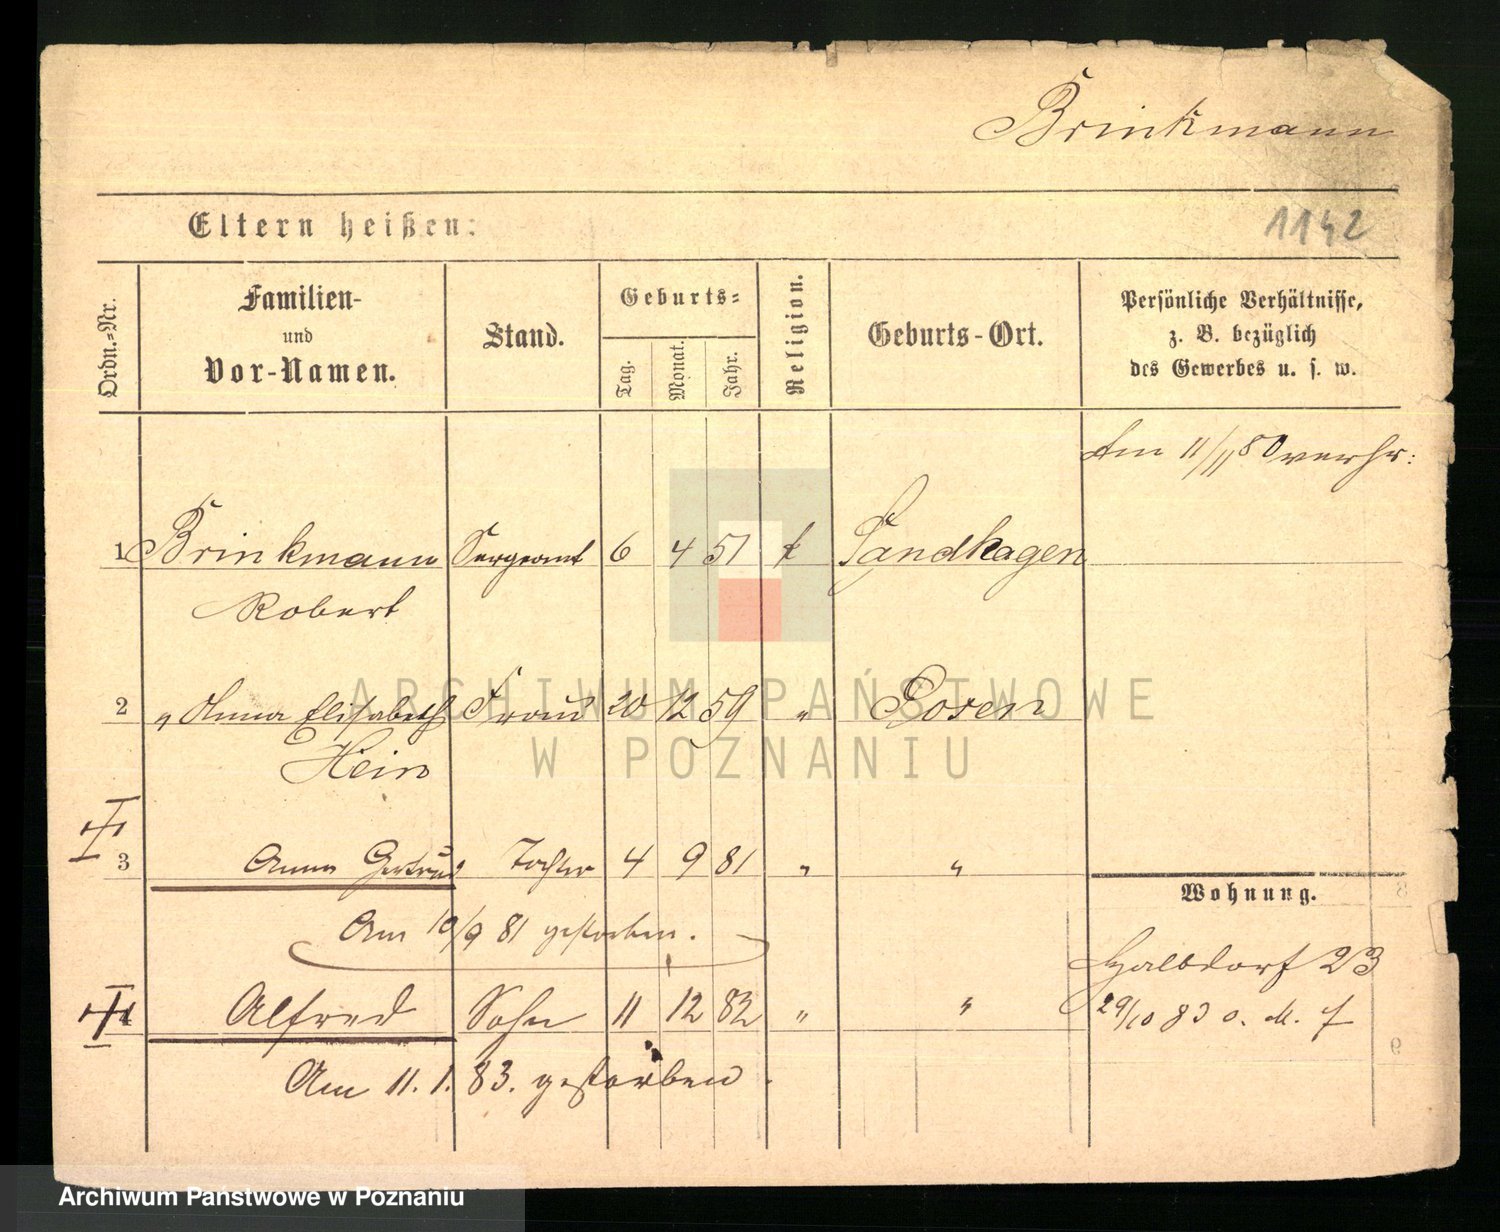 Brinkmann
Eltern heißen:
1142
Ordn.=Nr.
Familien-
und
Vor-Namen.
Stand.
Geburts=
Tag.
Monat.
Jahr.
Religion.
Geburts-Ort.
Persönliche Verhältnisse,
z. B. bezüglich
des Gewerbes u. s. w.
Am 11/11 80 verhr:
1 Brinkmann Sergeant 6 4 51 k Sandhagen
Robert
2 " Anna Elisabeth Frau 20 12 59 " Posen
Hein
3 Anna Gertrud Tochter 4 9 81 " "
Am 10/9 81 gestorben.
Wohnung.
Halbdorf 23
4 Alfred Sohn 11 12 82 " "
29/10 83 o. M. f
Am 11. 1. 83. gestorben.
ARCHIWUM PAŃSTWOWE
W POZNANIU
Archiwum Państwowe w Poznaniu